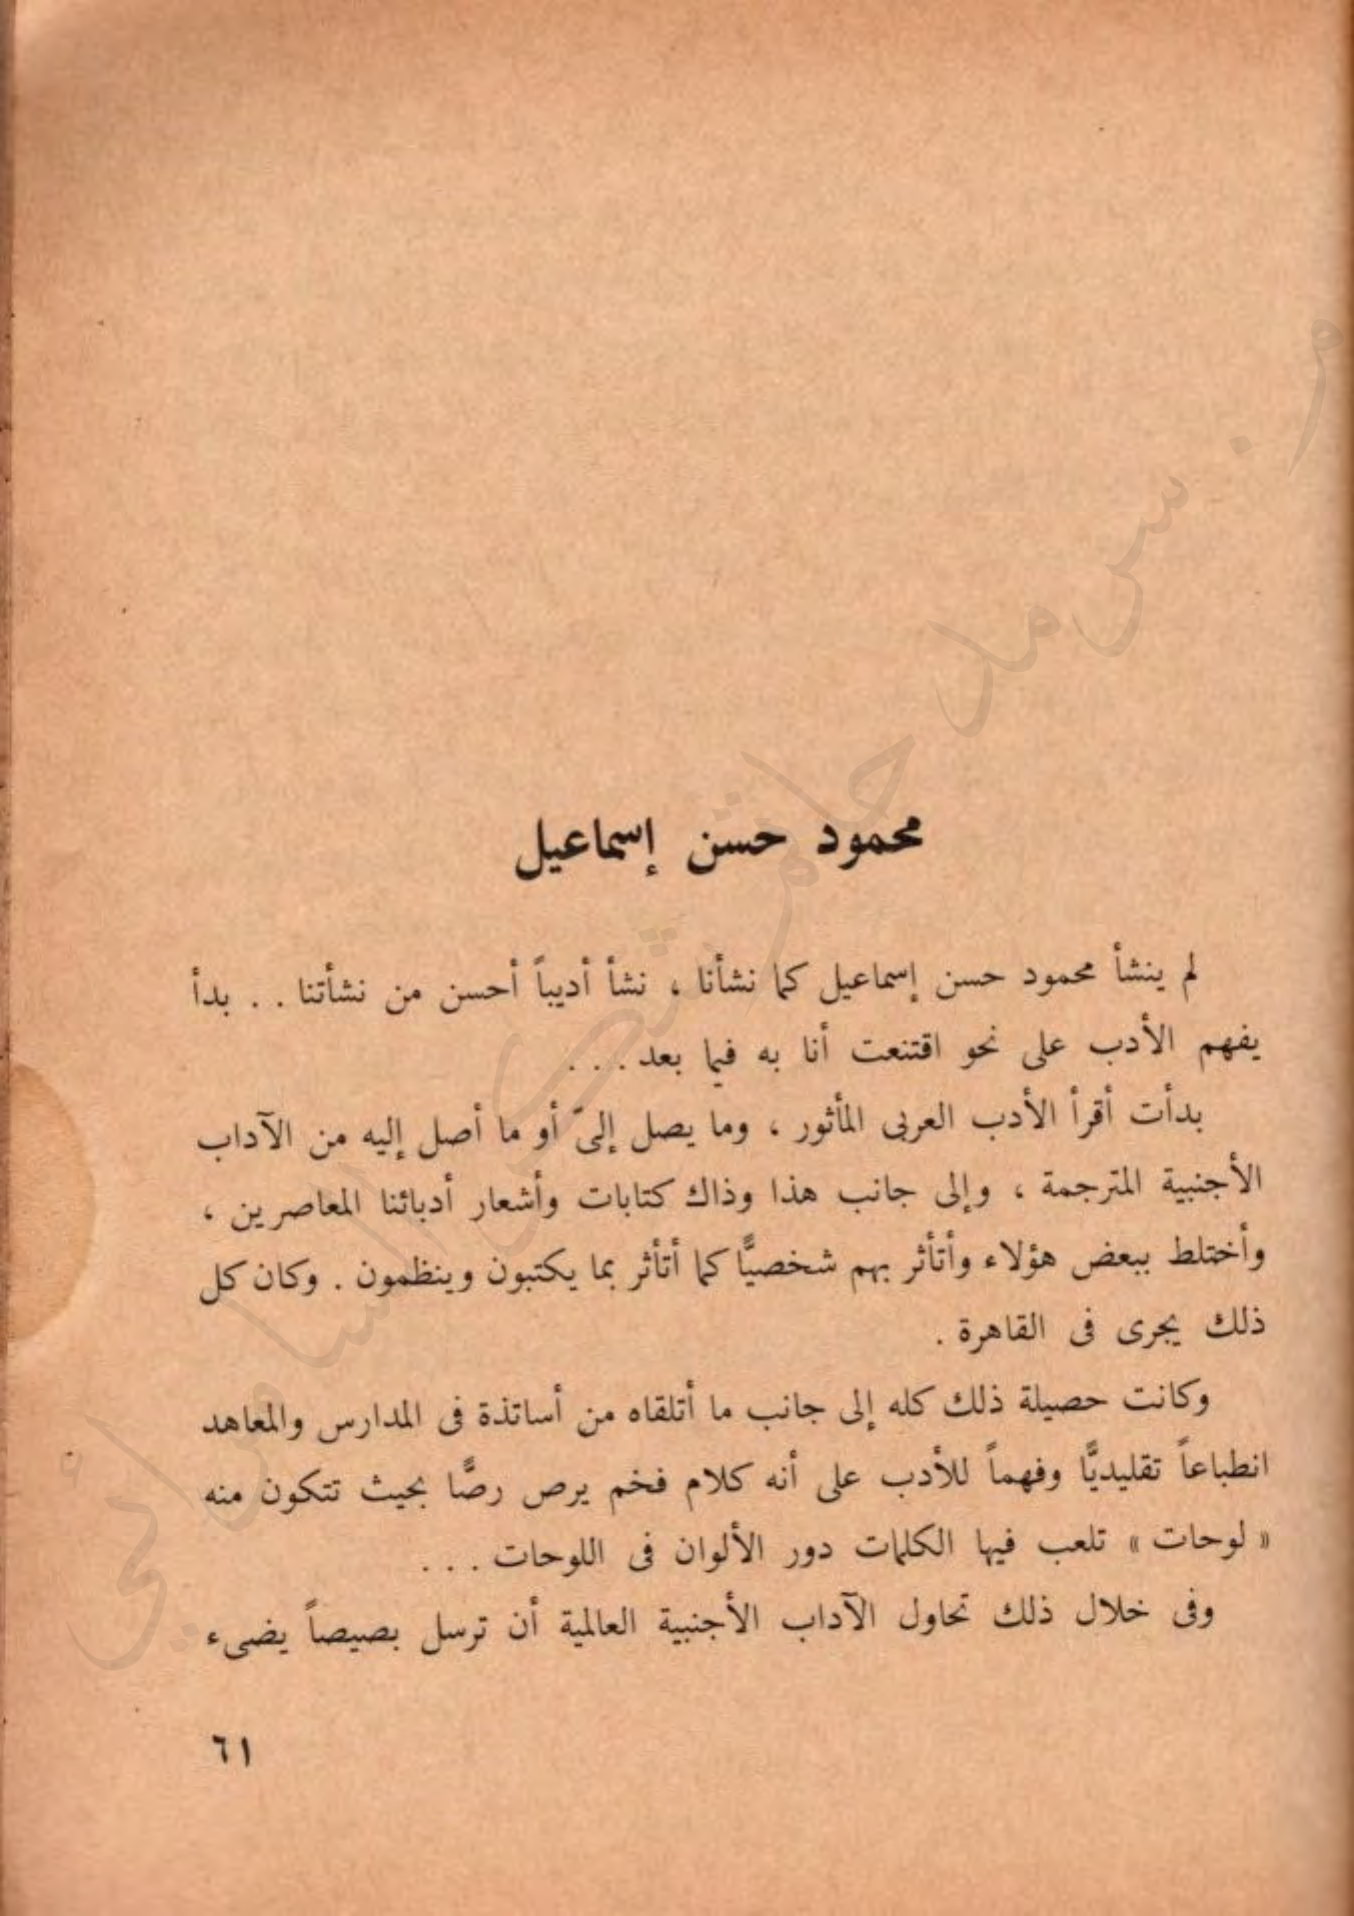 محمود حسن إسماعيل
لم ينشأ محمود حسن إسماعيل كما نشأنا ، نشأ أديباً أحسن من نشأتنا . . بدأ
يفهم الأدب على نحو اقتنعت أنا به فيما بعد . . .
بدأت أقرأ الأدب العربى المأثور ، وما يصل إلىّ أو ما أصل إليه من الآداب
الأجنبية المترجمة ، وإلى جانب هذا وذاك كتابات وأشعار أدبائنا المعاصرين ،
وأختلط ببعض هؤلاء وأتأثر بهم شخصيًّا كما أتأثر بما يكتبون وينظمون . وكان كل
ذلك يجرى فى القاهرة .
وكانت حصيلة ذلك كله إلى جانب ما أتلقاه من أساتذة فى المدارس والمعاهد
انطباعاً تقليديًّا وفهماً للأدب على أنه كلام فخم يرص رصًّا بحيث تتكون منه
« لوحات » تلعب فيها الكلمات دور الألوان فى اللوحات . . .
وفى خلال ذلك تحاول الآداب الأجنبية العالمية أن ترسل بصيصاً يضىء
٦١